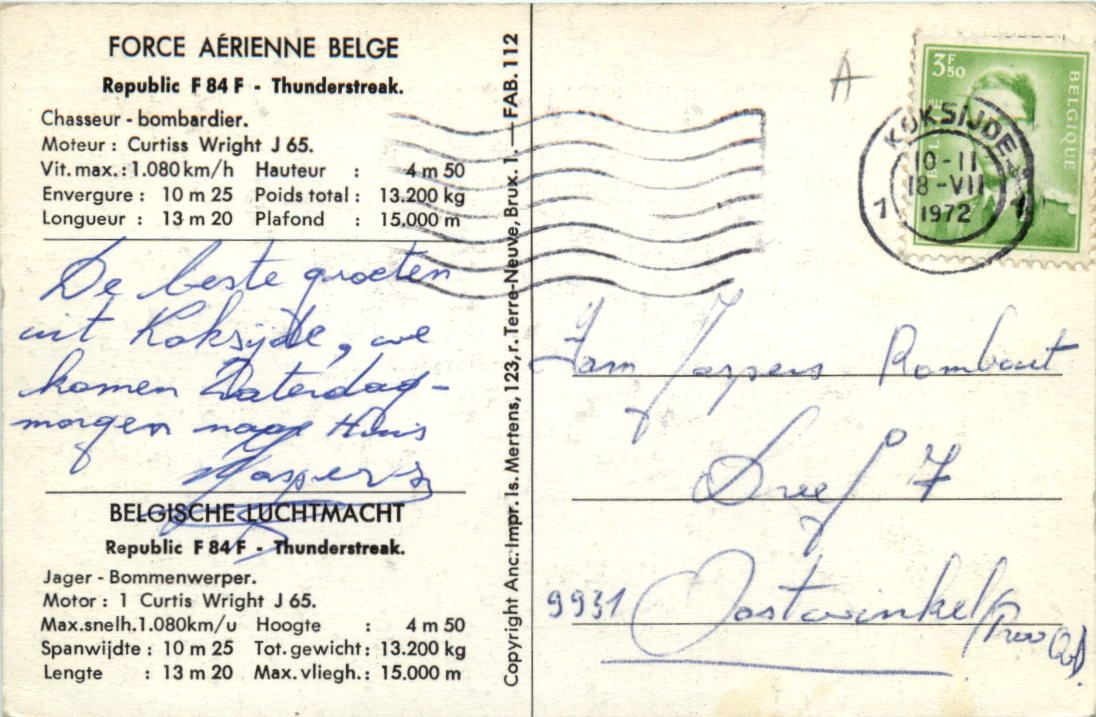 FORCE AÉRIENNE BELGE
Republic F 84 F - Thunderstreak.
Chasseur - bombardier.
Moteur : Curtiss Wright J 65.
Vit. max. : 1.080 km/h Hauteur : 4 m 50
Envergure : 10 m 25 Poids total : 13.200 kg
Longueur : 13 m 20 Plafond : 15.000 m
De beste groeten
uit Koksijde, we
komen Zaterdag-
morgen naar Huis
Jaspers
BELGISCHE LUCHTMACHT
Republic F 84 F - Thunderstreak.
Jager - Bommenwerper.
Motor : 1 Curtis Wright J 65.
Max.snelh.1.080km/u Hoogte : 4 m 50
Spanwijdte : 10 m 25 Tot. gewicht : 13.200 kg
Lengte : 13 m 20 Max. vliegh. : 15.000 m
Copyright Anc. Impr. Is. Mertens, 123, r. Terre-Neuve, Brux. 1. — FAB. 112
A
3F50
BELGIQUE
KOKSIJDE
10-11
18-VII
1972
1 1
Fam Jaspers Rombaut
Dreef 7
9931 Oostwinkel